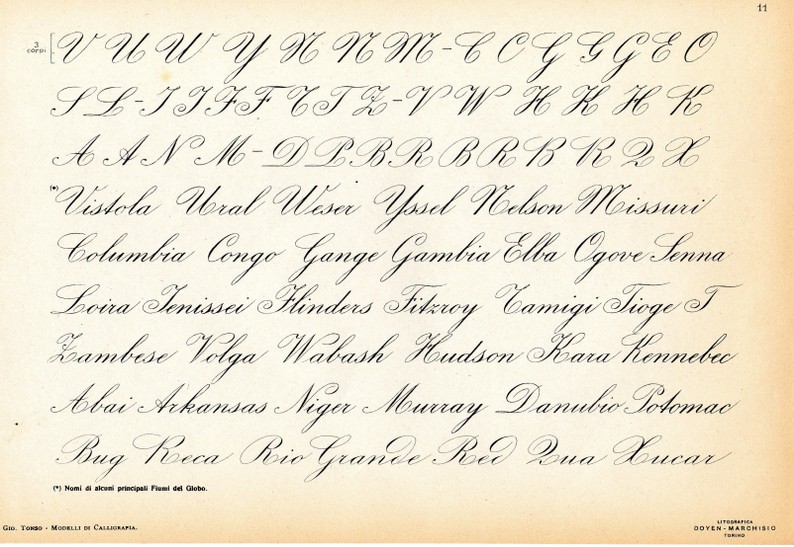 11
3 corpi V U W Y N N M - C C G G G E O
S L - I I F F T T Z - V W H K H K
A A N M - D P B R B R B R Q X
(*) Vistola Ural Weser Yssel Nelson Missuri
Columbia Congo Gange Gambia Elba Ogove Senna
Loira Jenissei Flinders Fitzroy Tamigi Tioge T
Zambese Volga Wabash Hudson Kara Kennebec
Abai Arkansas Niger Murray Danubio Potomac
Bug Reca Rio Grande Red Qua Xucar
(*) Nomi di alcuni principali Fiumi del Globo.
Gio. Tonso - Modelli di Calligrafia.
LITOGRAFICA
DOYEN - MARCHISIO
TORINO